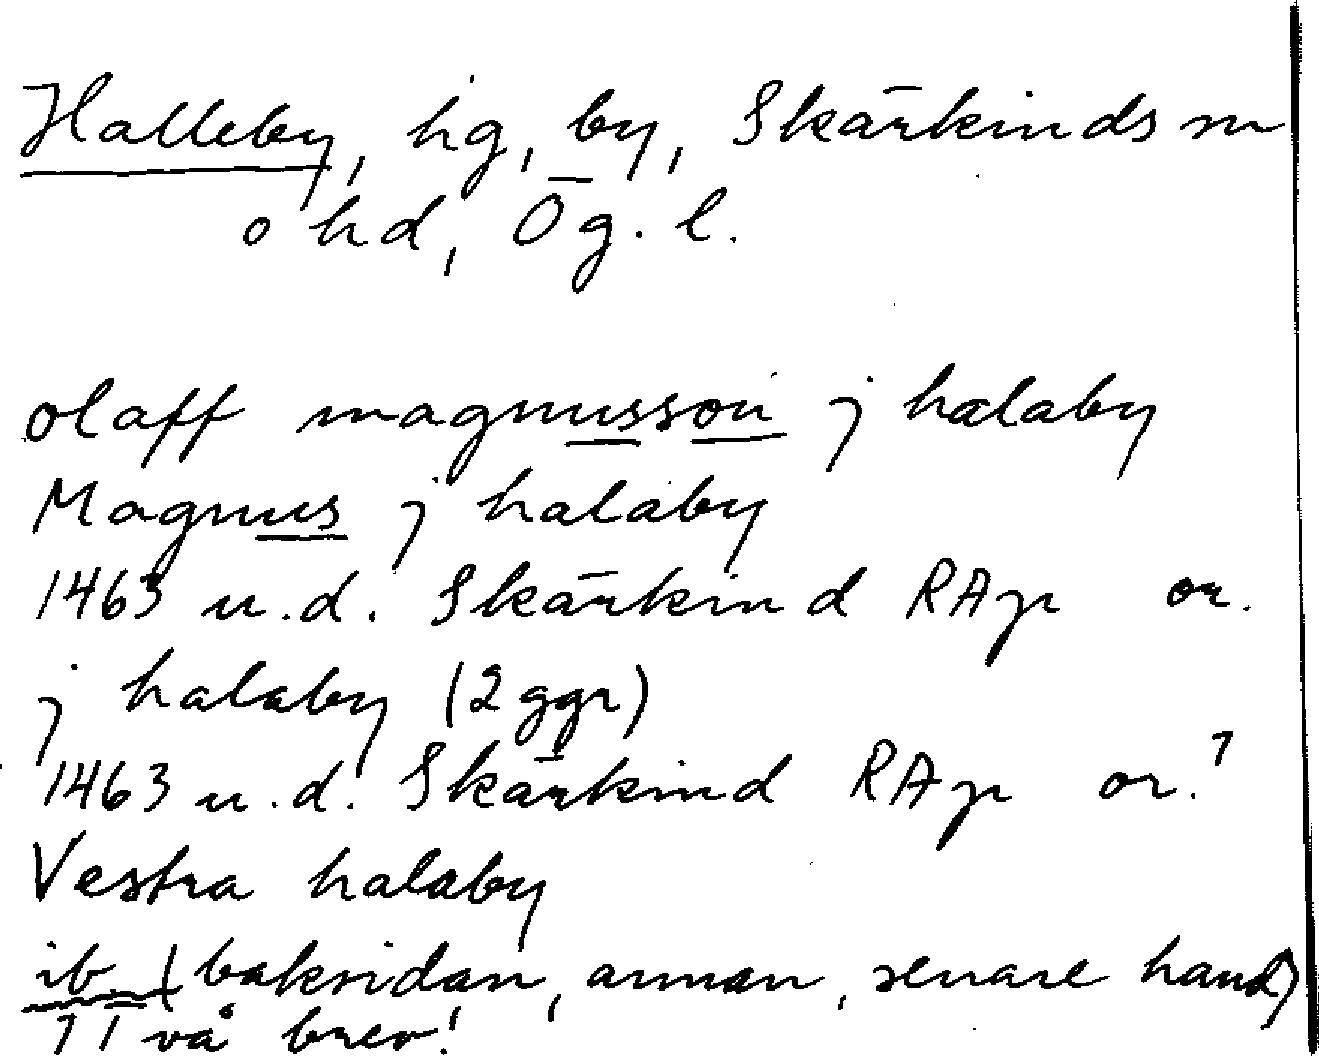 Halleby, hg, by, Skärkinds sn
o hd, Ög. l.
olaff magnusson j halaby
Magnus j halaby
1463 u.d. Skärkind RAp or.
j halaby (2 ggr)
1463 u.d. Skärkind RAp or.?
Vestra halaby
ib. (baksidan, annan, senare hand)
Två brev!